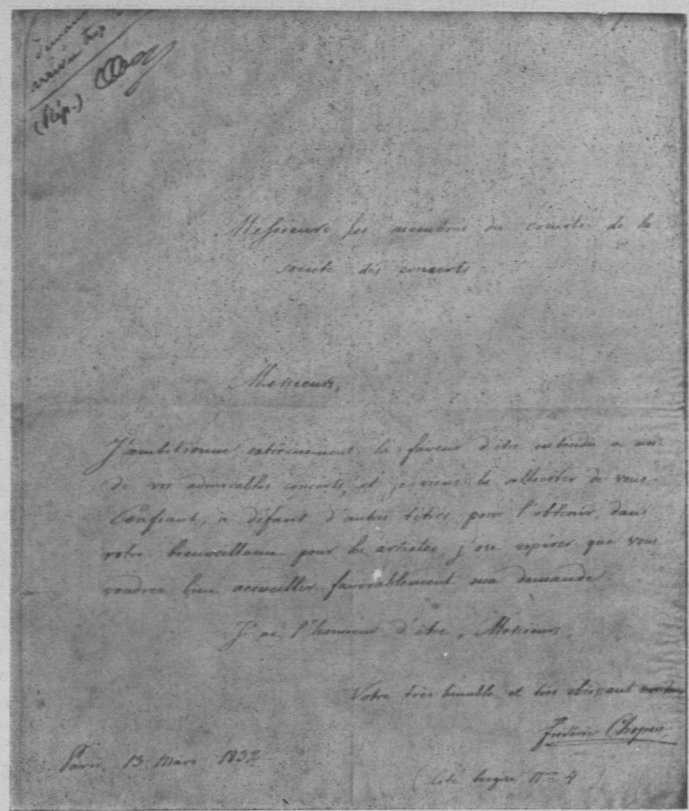 demande
arrivée trop
(Rép.)
Messieurs les membres du comité de la
société des concerts
Messieurs,
J'ambitionne extrêmement la faveur d'être entendu à un
de vos admirables concerts, et je viens la solliciter de vous.
Confiant, à défaut d'autres titres pour l'obtenir, dans
votre bienveillance pour les artistes, j'ose espérer que vous
voudrez bien accueillir favorablement ma demande.
J'ai l'honneur d'être, Messieurs,
Votre très humble et très obéissant serviteur
Frédéric Chopin
Paris, 13 Mars 1832
(cité Bergère N° 4)